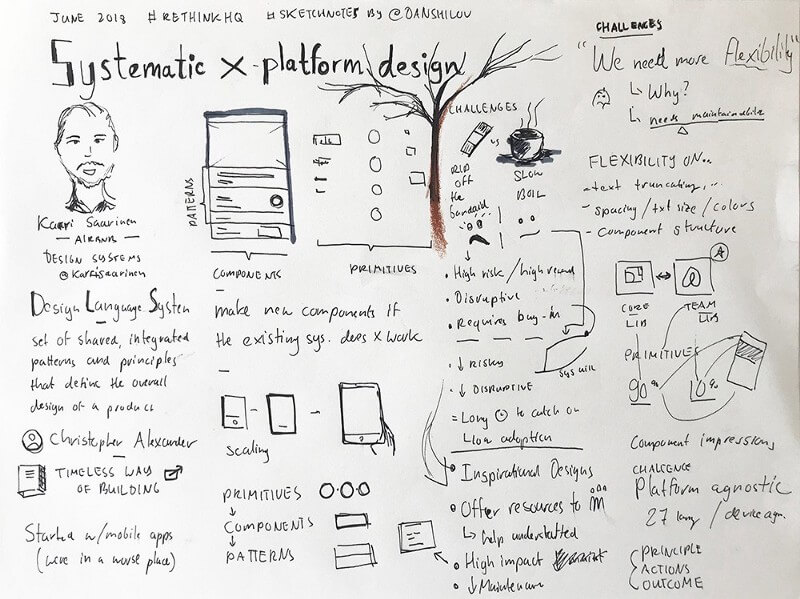 JUNE 2018 #RETHINKHQ #SKETCHNOTES BY @DANSHILOV
Systematic x-platform design
Karri Saarinen
- AIRBNB -
DESIGN SYSTEMS
@karrisaarinen
PATTERNS
COMPONENTS
PRIMITIVES
Design Language System
set of shared, integrated
patterns and principles
that define the overall
design of a product
Christopher Alexander
TIMELESS WAY
OF BUILDING
Started w/mobile apps
(were in a worse place)
make new components if
the existing sys. does x work
Scaling
PRIMITIVES
COMPONENTS
PATTERNS
CHALLENGES
RIP
OFF
the
bandaid
vs
SLOW
BOIL
• High risk / high reward
• Disruptive
• Requires buy-in
sys will
• ↓ RISKY
• ↓ DISRUPTIVE
= Long to catch on
↓ low adoption
• Inspirational Designs
• Offer resources to
↳ help understaffed
• High impact
• ↓ Maintenance
CHALLENGES
"We need more flexibility"
↳ Why?
↳ needs maintainable
FLEXIBILITY ON..
- text truncating, ..
- spacing / txt size / colors
- Component structure
A
CORE
LIB
TEAM
LIB
PRIMITIVES
90% 10%
Component impressions
CHALLENGE
Platform agnostic
27 lang / device agn.
PRINCIPLE
ACTIONS
OUTCOME